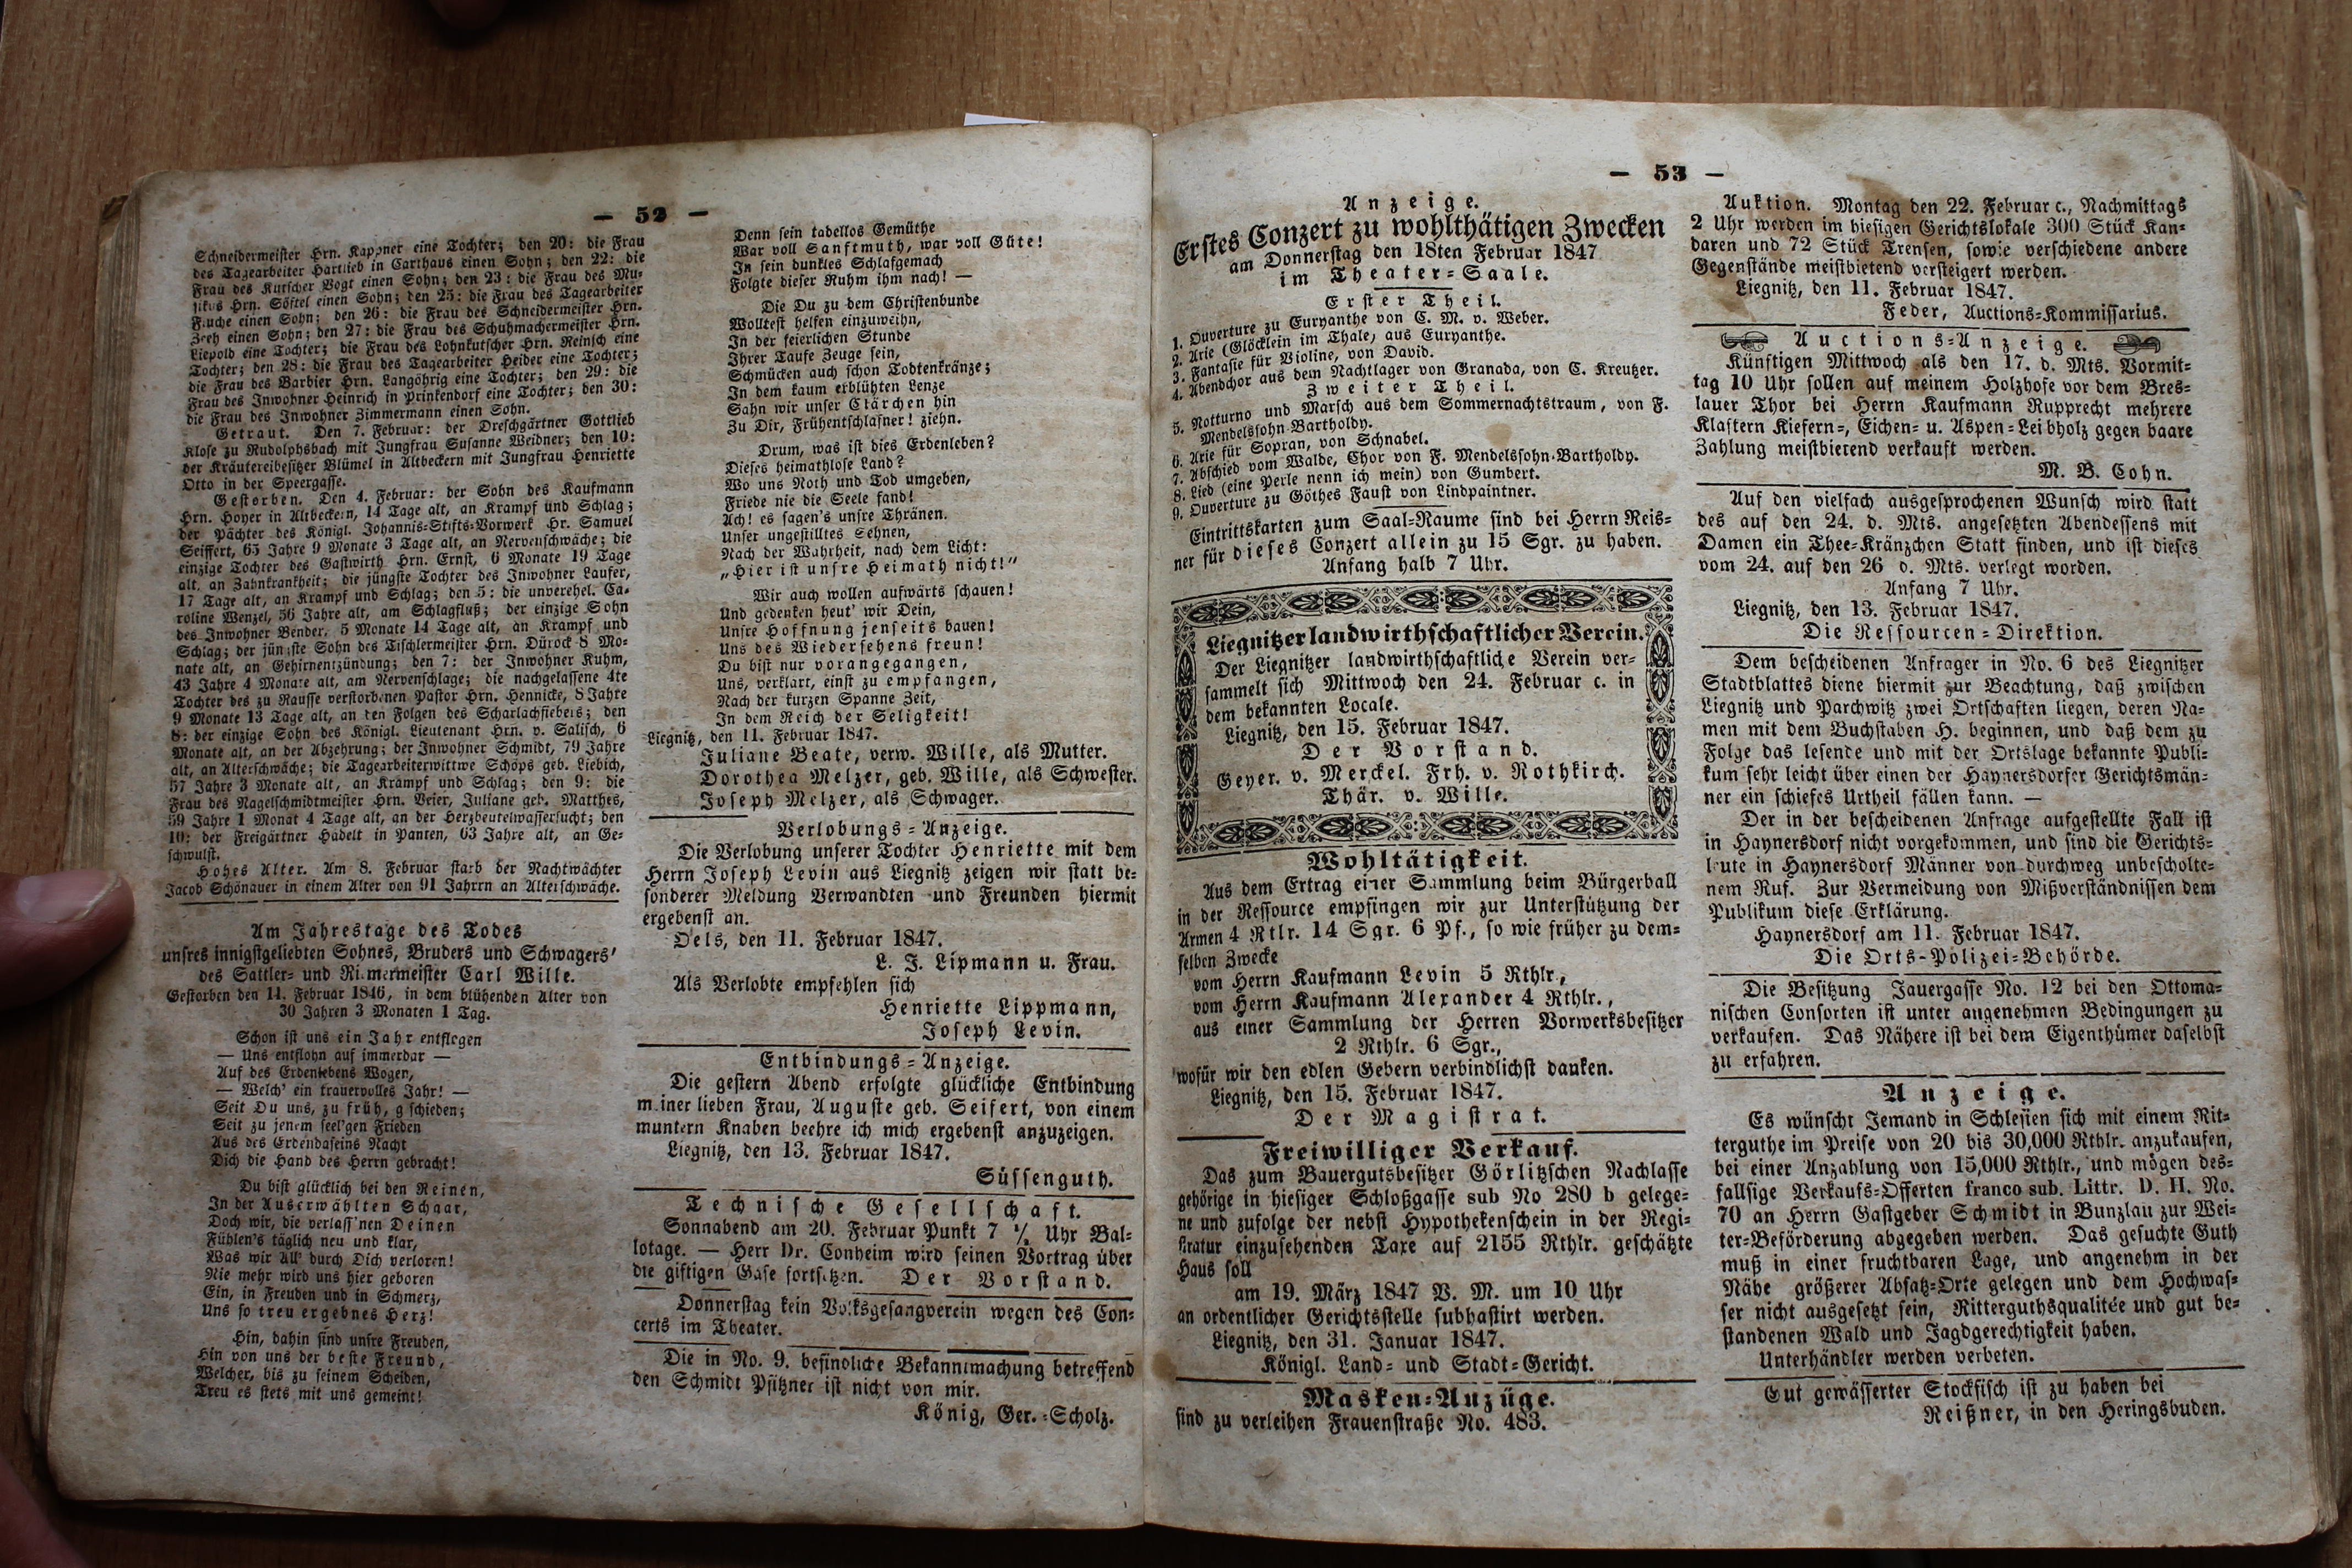 — 52 —
Schneidermeister Hrn. Kappner eine Tochter; den 20: die Frau
des Tagearbeiter Hartlieb in Carthaus einen Sohn; den 22: die
Frau des Kutscher Vogt einen Sohn; den 23: die Frau des Mu-
sikus Hrn. Söftel einen Sohn; den 25: die Frau des Tagearbeiter
Fuche einen Sohn; den 26: die Frau des Schneidermeister Hrn.
Zeeh einen Sohn; den 27: die Frau des Schuhmachermeister Hrn.
Liepold eine Tochter; die Frau des Lohnkutscher Hrn. Reinsch eine
Tochter; den 28: die Frau des Tagearbeiter Heider eine Tochter;
die Frau des Barbier Hrn. Langöhrig eine Tochter; den 29: die
Frau des Inwohner Heinrich in Prinkendorf eine Tochter; den 30:
die Frau des Inwohner Zimmermann einen Sohn.
Getraut. Den 7. Februar: der Dreschgärtner Gottlieb
Klose zu Rudolphsbach mit Jungfrau Susanne Weidner; den 10:
der Kräutereibesitzer Blümel in Altbeckern mit Jungfrau Henriette
Otto in der Speergasse.
Gestorben. Den 4. Februar: der Sohn des Kaufmann
Hrn. Hoyer in Altbeckern, 14 Tage alt, an Krampf und Schlag;
der Pächter des Königl. Johannis-Stifts-Vorwerk Hr. Samuel
Seiffert, 65 Jahre 9 Monate 3 Tage alt, an Nervenschwäche; die
einzige Tochter des Gastwirth Hrn. Ernst, 6 Monate 19 Tage
alt, an Zahnkrankheit; die jüngste Tochter des Inwohner Laufer,
17 Tage alt, an Krampf und Schlag; den 5: die unverehel. Ca-
roline Wenzel, 56 Jahre alt, am Schlagfluß; der einzige Sohn
des Inwohner Bender, 5 Monate 14 Tage alt, an Krampf und
Schlag; der jüngste Sohn des Tischlermeister Hrn. Dürock 8 Mo-
nate alt, an Gehirnentzündung; den 7: der Inwohner Kuhm,
43 Jahre 4 Monate alt, am Nervenschlage; die nachgelassene 4te
Tochter des zu Rausse verstorbenen Pastor Hrn. Hennicke, 8 Jahre
9 Monate 13 Tage alt, an den Folgen des Scharlachfiebers; den
8: der einzige Sohn des Königl. Lieutenant Hrn. v. Salisch, 6
Monate alt, an der Abzehrung; der Inwohner Schmidt, 79 Jahre
alt, an Alterschwäche; die Tagearbeiterwittwe Schöps geb. Liebich,
57 Jahre 3 Monate alt, an Krampf und Schlag; den 9: die
Frau des Nagelschmidtmeister Hrn. Beier, Juliane geb. Matthes,
59 Jahre 1 Monat 4 Tage alt, an der Herzbeutelwassersucht; den
10: der Freigärtner Hadelt in Panten, 63 Jahre alt, an Ge-
schwulst.
Hohes Alter. Am 8. Februar starb der Nachtwächter
Jacob Schönauer in einem Alter von 91 Jahrrn an Alterschwäche.
Am Jahrestage des Todes
unsres innigstgeliebten Sohnes, Bruders und Schwagers'
des Sattler- und Riemermeister Carl Wille.
Gestorben den 11. Februar 1846, in dem blühenden Alter von
30 Jahren 3 Monaten 1 Tag.
Schon ist uns ein Jahr entflogen
— Uns entflohn auf immerdar —
Auf des Erdenlebens Wogen,
— Welch' ein trauervolles Jahr! —
Seit Du uns, zu früh, g schieden;
Seit zu jenem seel'gen Frieden
Aus des Erdendaseins Nacht
Dich die Hand des Herrn gebracht!
Du bist glücklich bei den Reinen,
In der Auserwählten Schaar,
Doch wir, die verlass'nen Deinen
Fühlen's täglich neu und klar,
Was wir All' durch Dich verloren!
Nie mehr wird uns hier geboren
Ein, in Freuden und in Schmerz,
Uns so treu ergebnes Herz!
Hin, dahin sind unsre Freuden,
Hin von uns der beste Freund,
Welcher, bis zu seinem Scheiden,
Treu es stets mit uns gemeint!
Denn sein tadellos Gemüthe
War voll Sanftmuth, war voll Güte!
In sein dunkles Schlafgemach
Folgte dieser Ruhm ihm nach! —
Die Du zu dem Christenbunde
Wolltest helfen einzuweihn,
In der feierlichen Stunde
Ihrer Taufe Zeuge sein,
Schmücken auch schon Todtenkränze;
In dem kaum erblühten Lenze
Sahn wir unser Clärchen hin
Zu Dir, Frühentschlafner! ziehn.
Drum, was ist dies Erdenleben?
Dieses heimathlose Land?
Wo uns Noth und Tod umgeben,
Friede nie die Seele fand!
Ach! es sagen's unsre Thränen.
Unser ungestilltes Sehnen,
Nach der Wahrheit, nach dem Licht:
„Hier ist unsre Heimath nicht!"
Wir auch wollen aufwärts schauen!
Und gedenken heut' wir Dein,
Unsre Hoffnung jenseits bauen!
Uns des Wiedersehens freun!
Du bist nur vorangegangen,
Uns, verklärt, einst zu empfangen,
Nach der kurzen Spanne Zeit,
In dem Reich der Seligkeit!
Liegnitz, den 11. Februar 1847.
Juliane Beate, verw. Wille, als Mutter.
Dorothea Melzer, geb. Wille, als Schwester.
Joseph Melzer, als Schwager.
Verlobungs-Anzeige.
Die Verlobung unserer Tochter Henriette mit dem
Herrn Joseph Levin aus Liegnitz zeigen wir statt be-
sonderer Meldung Verwandten und Freunden hiermit
ergebenst an.
Oels, den 11. Februar 1847.
L. J. Lipmann u. Frau.
Als Verlobte empfehlen sich
Henriette Lippmann,
Joseph Levin.
Entbindungs-Anzeige.
Die gestern Abend erfolgte glückliche Entbindung
m iner lieben Frau, Auguste geb. Seifert, von einem
muntern Knaben beehre ich mich ergebenst anzuzeigen.
Liegnitz, den 13. Februar 1847.
Süssenguth.
Technische Gesellschaft.
Sonnabend am 20. Februar Punkt 7 ½ Uhr Bal-
lotage. — Herr Dr. Conheim wird seinen Vortrag über
die giftigen Gase fortsetzen. Der Vorstand.
Donnerstag kein Volksgesangverein wegen des Con-
certs im Theater.
Die in No. 9. befindliche Bekanntmachung betreffend
den Schmidt Pfitzner ist nicht von mir.
König, Ger.-Scholz.
— 53 —
Anzeige.
Erstes Conzert zu wohlthätigen Zwecken
am Donnerstag den 18ten Februar 1847
im Theater-Saale.
Erster Theil.
1. Ouverture zu Euryanthe von C. M. v. Weber.
2. Arie (Glöcklein im Thale) aus Euryanthe.
3. Fantasie für Violine, von David.
4. Abendchor aus dem Nachtlager von Granada, von C. Kreutzer.
Zweiter Theil.
5. Notturno und Marsch aus dem Sommernachtstraum, von F.
Mendelssohn-Bartholdy.
6. Arie für Sopran, von Schnabel.
7. Abschied vom Walde, Chor von F. Mendelssohn-Bartholdy.
8. Lied (eine Perle nenn ich mein) von Gumbert.
9. Ouverture zu Göthes Faust von Lindpaintner.
Eintrittskarten zum Saal-Raume sind bei Herrn Reis-
ner für dieses Conzert allein zu 15 Sgr. zu haben.
Anfang halb 7 Uhr.
Liegnitzer landwirthschaftlicher Verein.
Der Liegnitzer landwirthschaftliche Verein ver-
sammelt sich Mittwoch den 24. Februar c. in
dem bekannten Locale.
Liegnitz, den 15. Februar 1847.
Der Vorstand.
Geyer. v. Merckel. Frh. v. Rothkirch.
Thär. v. Wille.
Wohltätigkeit.
Aus dem Ertrag einer Sammlung beim Bürgerball
in der Ressource empfingen wir zur Unterstützung der
Armen 4 Rtlr. 14 Sgr. 6 Pf., so wie früher zu dem-
selben Zwecke
vom Herrn Kaufmann Levin 5 Rthlr.,
vom Herrn Kaufmann Alexander 4 Rthlr.,
aus einer Sammlung der Herren Vorwerksbesitzer
2 Rthlr. 6 Sgr.,
wofür wir den edlen Gebern verbindlichst danken.
Liegnitz, den 15. Februar 1847.
Der Magistrat.
Freiwilliger Verkauf.
Das zum Bauergutsbesitzer Görlitzschen Nachlasse
gehörige in hiesiger Schloßgasse sub No 280 b gelege-
ne und zufolge der nebst Hypothekenschein in der Regi-
stratur einzusehenden Taxe auf 2155 Rthlr. geschätzte
Haus soll
am 19. März 1847 V. M. um 10 Uhr
an ordentlicher Gerichtsstelle subhastirt werden.
Liegnitz, den 31. Januar 1847.
Königl. Land- und Stadt-Gericht.
Masken-Anzüge.
sind zu verleihen Frauenstraße No. 483.
Auktion. Montag den 22. Februar c., Nachmittags
2 Uhr werden im hiesigen Gerichtslokale 300 Stück Kan-
daren und 72 Stück Trensen, sowie verschiedene andere
Gegenstände meistbietend versteigert werden.
Liegnitz, den 11. Februar 1847.
Feder, Auctions-Kommissarius.
Auctions-Anzeige.
Künftigen Mittwoch als den 17. d. Mts. Vormit-
tag 10 Uhr sollen auf meinem Holzhofe vor dem Bres-
lauer Thor bei Herrn Kaufmann Rupprecht mehrere
Klaftern Kiefern-, Eichen- u. Aspen-Leibholz gegen baare
Zahlung meistbietend verkauft werden.
M. B. Cohn.
Auf den vielfach ausgesprochenen Wunsch wird statt
des auf den 24. d. Mts. angesetzten Abendessens mit
Damen ein Thee-Kränzchen Statt finden, und ist dieses
vom 24. auf den 26 d. Mts. verlegt worden.
Anfang 7 Uhr.
Liegnitz, den 13. Februar 1847.
Die Ressourcen-Direktion.
Dem bescheidenen Anfrager in No. 6 des Liegnitzer
Stadtblattes diene hiermit zur Beachtung, daß zwischen
Liegnitz und Parchwitz zwei Ortschaften liegen, deren Na-
men mit dem Buchstaben H. beginnen, und daß dem zu
Folge das lesende und mit der Ortslage bekannte Publi-
kum sehr leicht über einen der Haynersdorfer Gerichtsmän-
ner ein schiefes Urtheil fällen kann. —
Der in der bescheidenen Anfrage aufgestellte Fall ist
in Haynersdorf nicht vorgekommen, und sind die Gerichts-
leute in Haynersdorf Männer von durchweg unbescholte-
nem Ruf. Zur Vermeidung von Mißverständnissen dem
Publikum diese Erklärung.
Haynersdorf am 11. Februar 1847.
Die Orts-Polizei-Behörde.
Die Besitzung Jauergasse No. 12 bei den Ottoma-
nischen Consorten ist unter angenehmen Bedingungen zu
verkaufen. Das Nähere ist bei dem Eigenthümer daselbst
zu erfahren.
Anzeige.
Es wünscht Jemand in Schlesien sich mit einem Rit-
terguthe im Preise von 20 bis 30,000 Rthlr. anzukaufen,
bei einer Anzahlung von 15,000 Rthlr., und mögen des-
fallsige Verkaufs-Offerten franco sub. Littr. D. H. No.
70 an Herrn Gastgeber Schmidt in Bunzlau zur Wei-
ter-Beförderung abgegeben werden. Das gesuchte Guth
muß in einer fruchtbaren Lage, und angenehm in der
Nähe größerer Absatz-Orte gelegen und dem Hochwas-
ser nicht ausgesetzt sein, Ritterguthsqualitée und gut be-
standenen Wald und Jagdgerechtigkeit haben.
Unterhändler werden verbeten.
Gut gewässerter Stockfisch ist zu haben bei
Reißner, in den Heringsbuden.